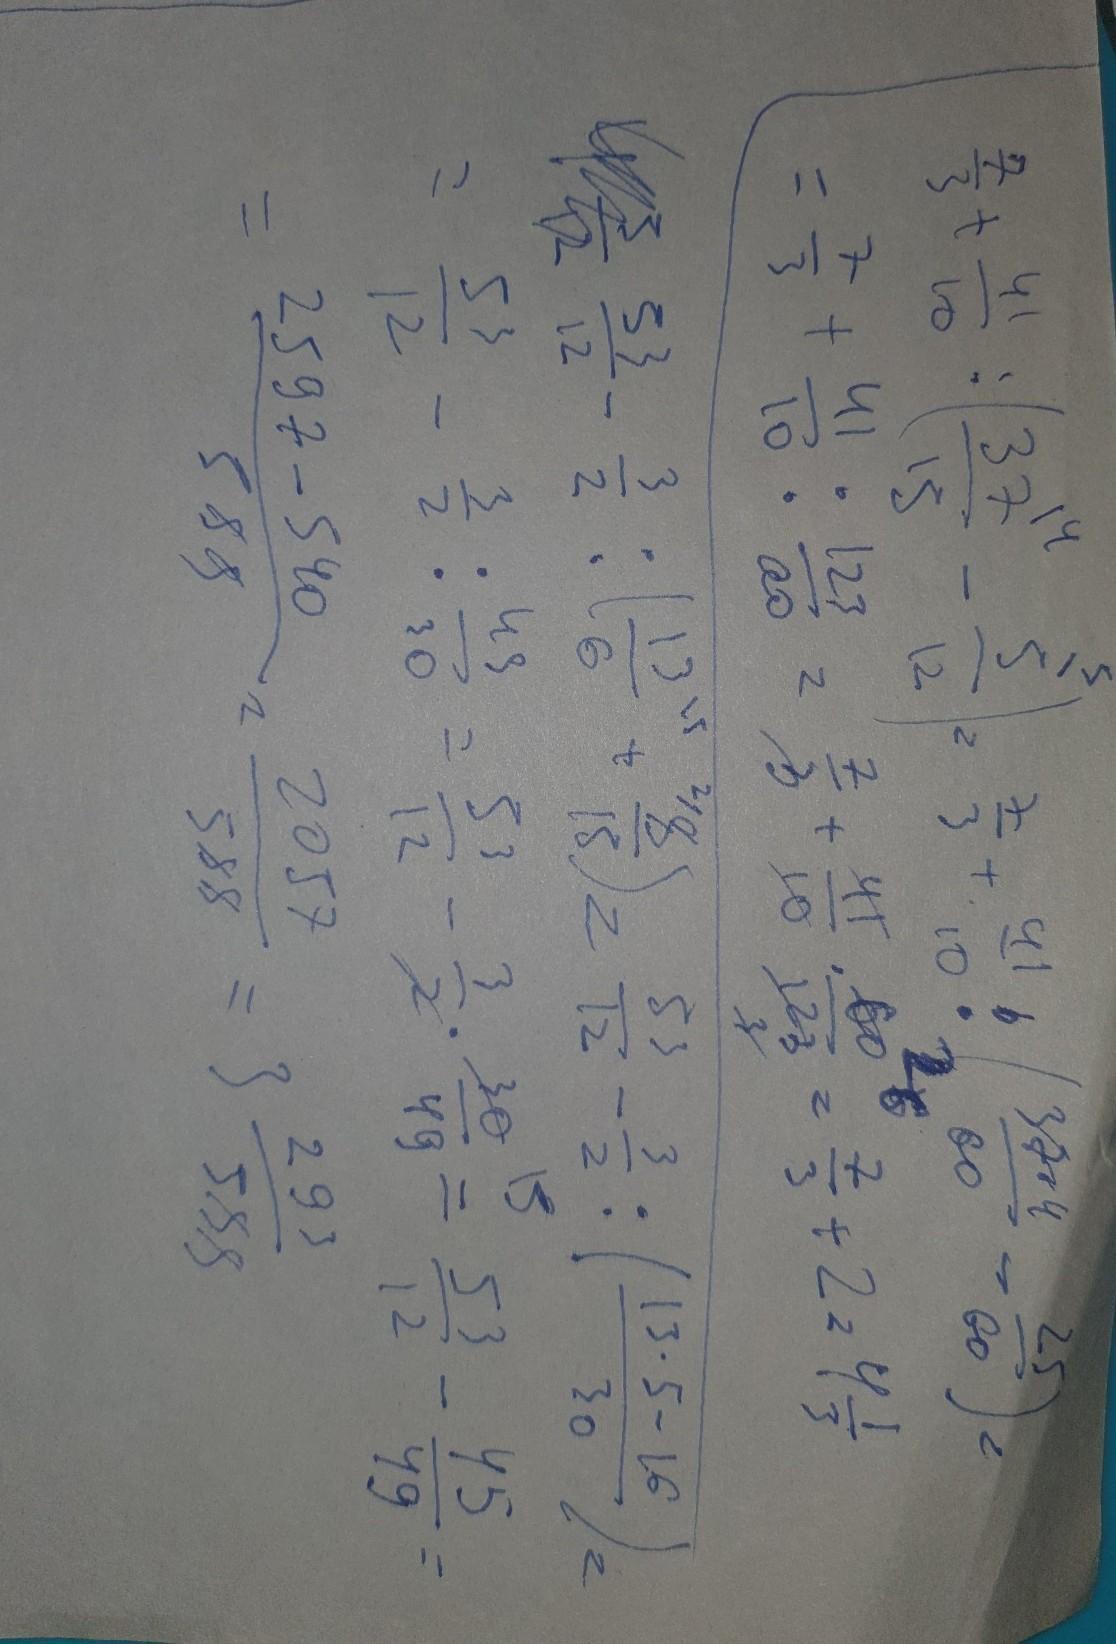 7/3 + 41/10 : (37/15 \4 - 5/12 \5) = 7/3 + 41/10 : (37·4/60 - 25/60) =
= 7/3 + 41/10 : 123/60 = 7/3 + 41/10 · 60/123 = 7/3 + 2 = 4 1/3
53/12 - 3/2 : (13/6 \5 + 8/15 \2) = 53/12 - 3/2 : (13·5-16/30) =
= 53/12 - 3/2 : 49/30 = 53/12 - 3/2 · 30/49 = 53/12 - 45/49 =
= 2597-540/588 = 2057/588 = 3 293/588